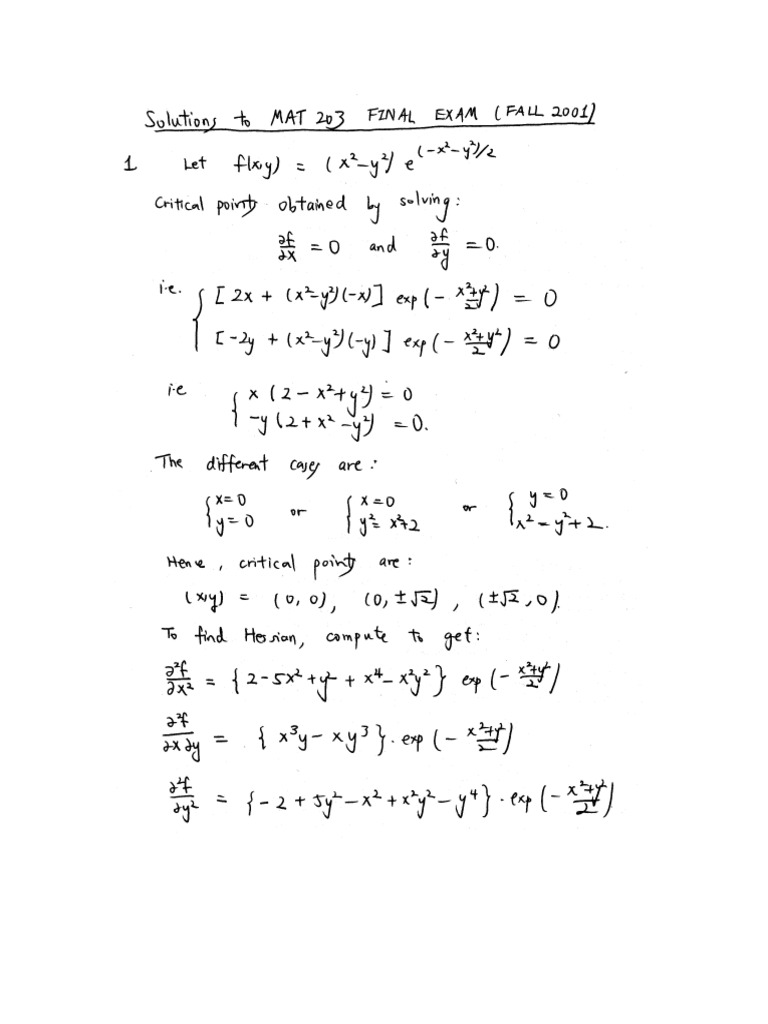 Solutions to MAT 203 FINAL EXAM (FALL 2001)
1 Let f(x,y) = (x²-y²) e^(-x²-y²)/2
Critical points obtained by solving:
∂f/∂x = 0 and ∂f/∂y = 0.
i.e. { [2x + (x²-y²)(-x)] exp(- (x²+y²)/2) = 0
[-2y + (x²-y²)(-y)] exp(- (x²+y²)/2) = 0
i.e { x (2 - x²+y²) = 0
-y (2 + x² - y²) = 0.
The different cases are:
{ x=0 y=0 or { x=0 y² = x²+2 or { y=0 x² - y²+2.
Hence, critical points are:
(x,y) = (0,0), (0, ±√2), (±√2, 0).
To find Hessian, compute to get:
∂²f/∂x² = {2-5x²+y² + x⁴ - x²y²} exp(- (x²+y²)/2)
∂²f/∂x∂y = {x³y - xy³}. exp(- (x²+y²)/2)
∂²f/∂y² = {-2 + 5y² - x² + x²y² - y⁴} . exp(- (x²+y²)/2)